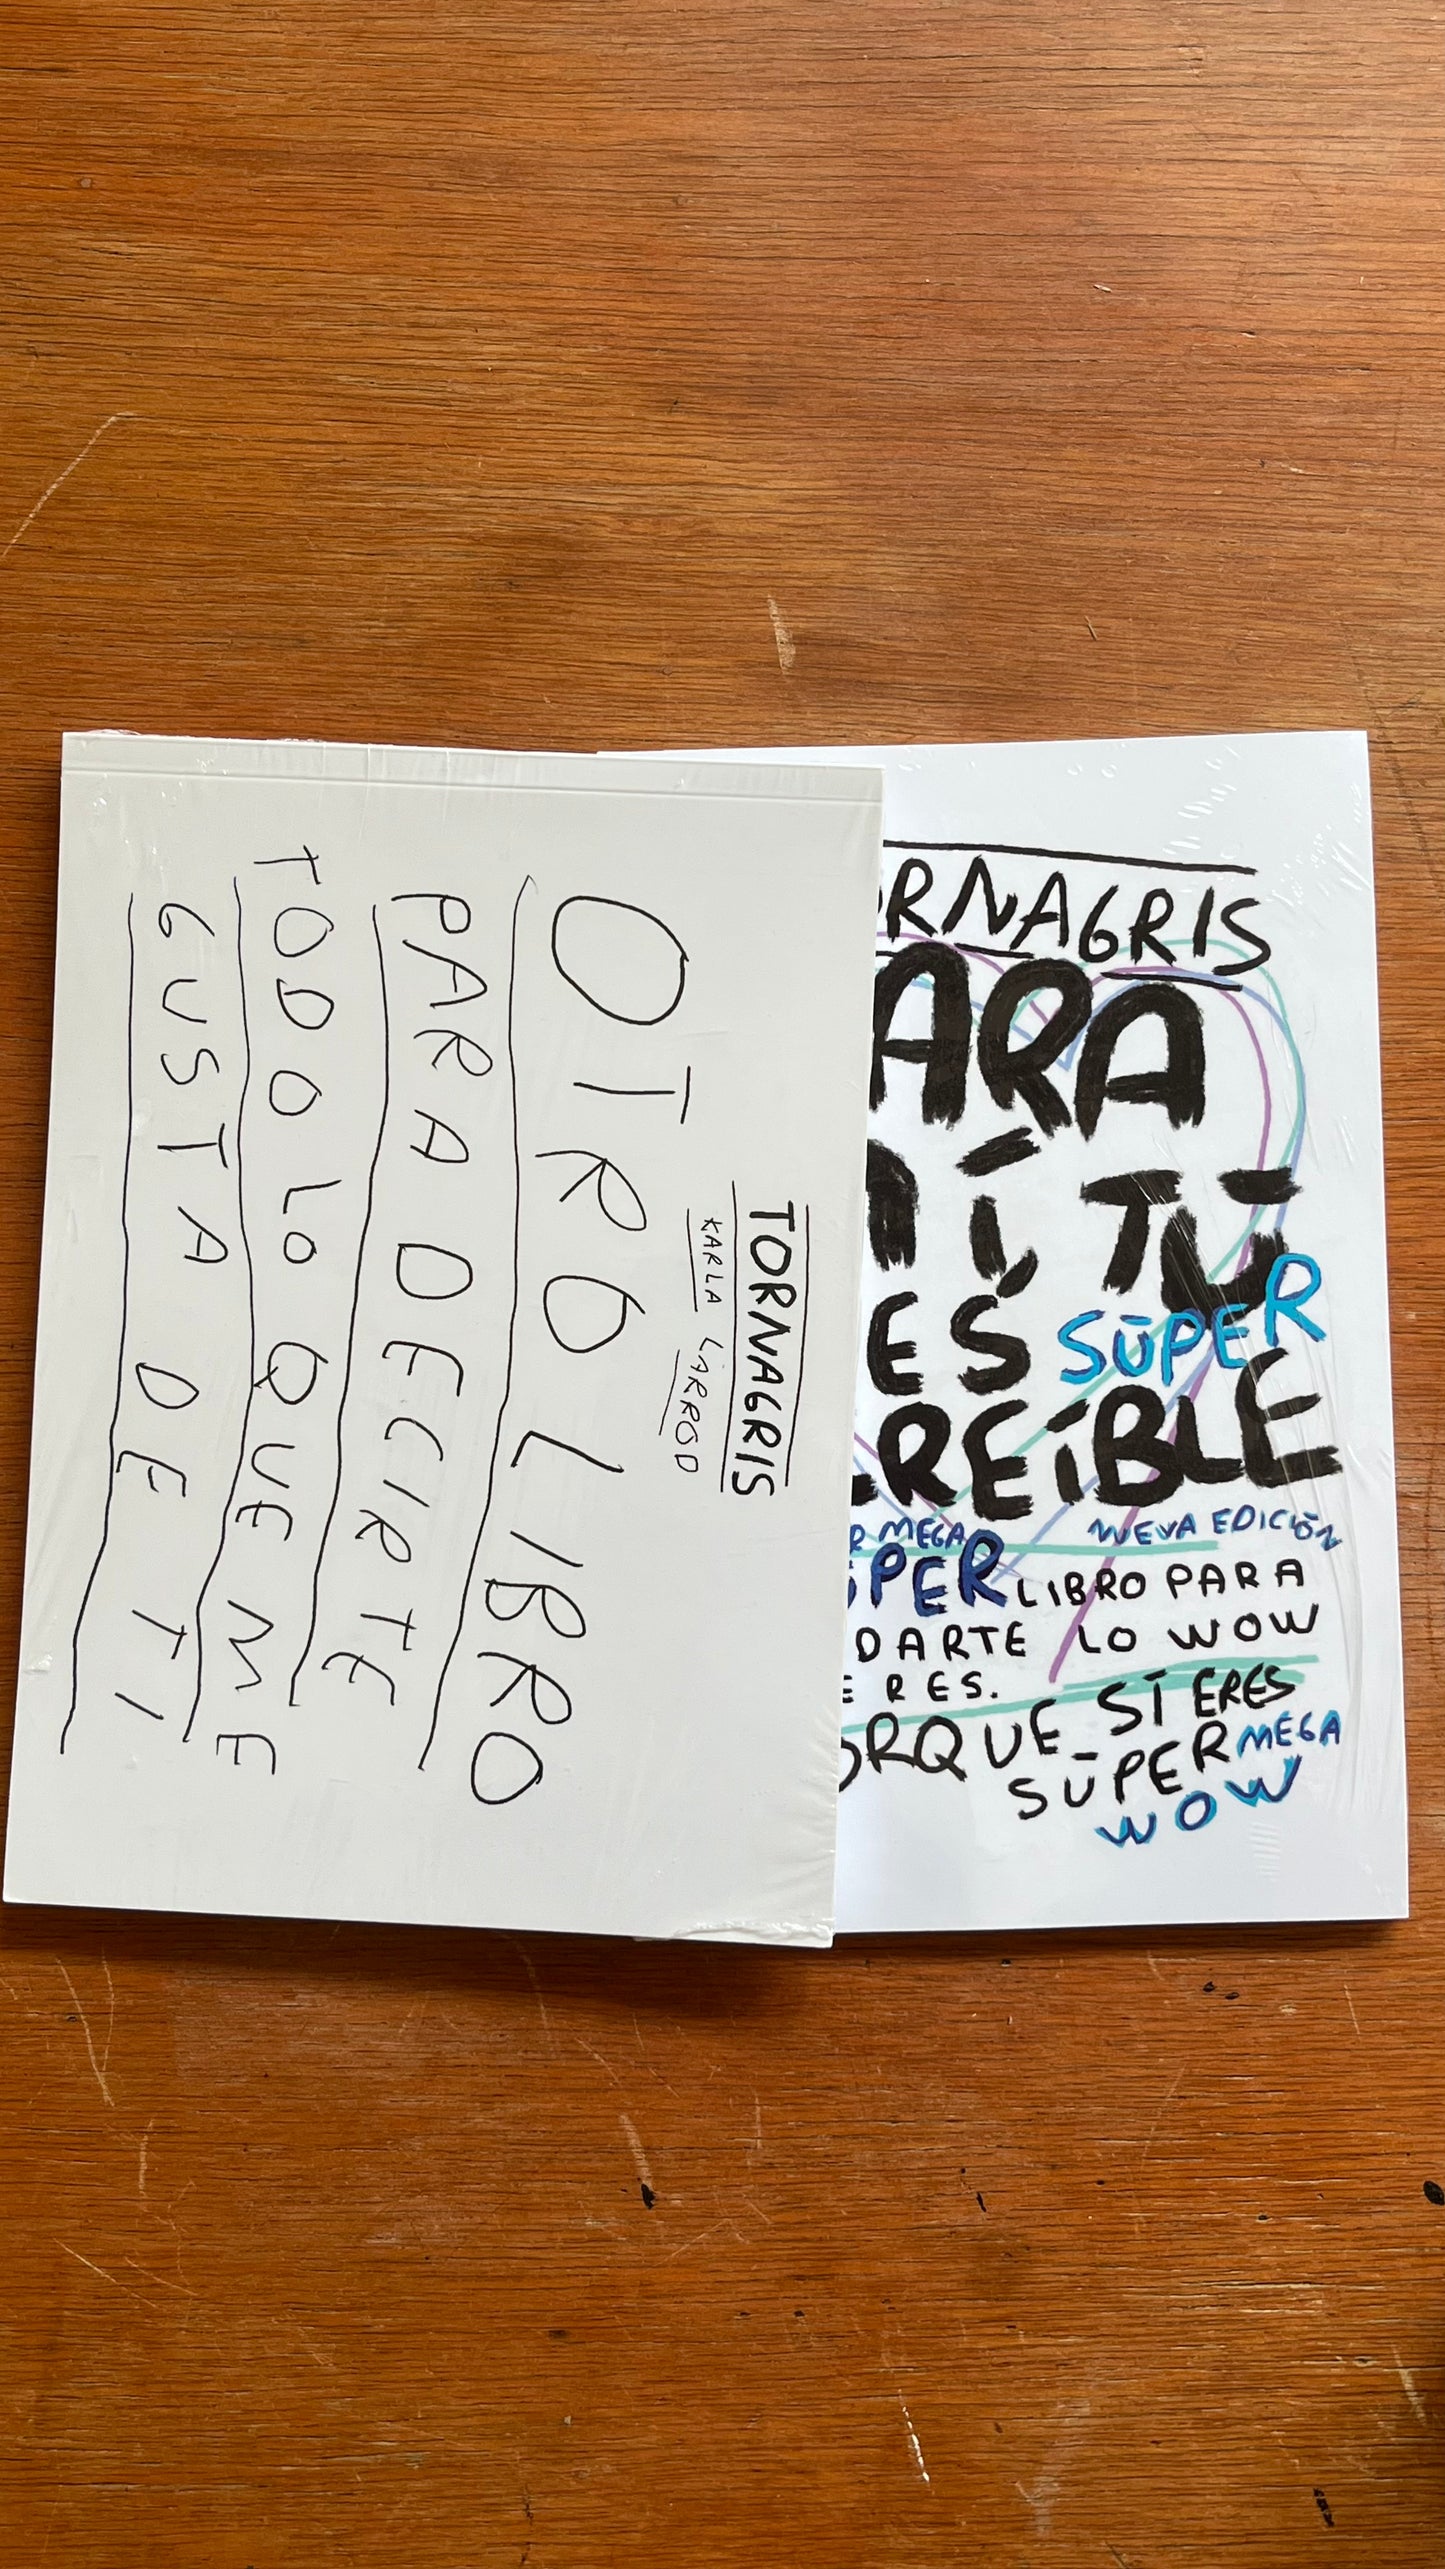 TORNAGRIS
KARLA LARROD
OTRO LIBRO
PARA DECIRTE
TODO LO QUE ME
GUSTA DE TI
RNAGRIS
ARA
Í TÚ
ES SÚPER
REÍBLE
R MEGA NUEVA EDICIÓN
ÚPER LIBRO PARA
DARTE LO WOW
ERES.
ORQUE SÍ ERES
SÚPER MEGA
WOW